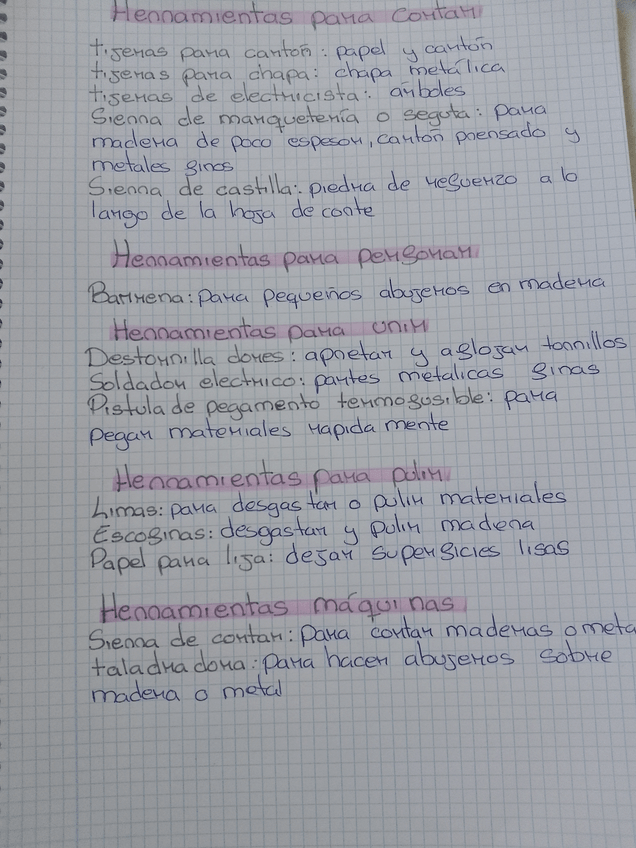 Herramientas para cortar
tijeras para cartón: papel y cartón
tijeras para chapa: chapa metálica
tijeras de electricista: arboles
Sierra de marquetería o segueta: para
madera de poco espesor, cartón prensado y
metales finos
Sierra de castilla: piedra de refuerzo a lo
largo de la hoja de corte
Herramientas para perforar
Barrena: para pequeños abujeros en madera
Herramientas para unir
Destornilla dores: apretar y aflojar tornillos
Soldador electrico: partes metalicas finas
Pistula de pegamento termofusible: para
pegar materiales rapida mente
Herramientas para pulir
Limas: para desgastar o pulir materiales
Escofinas: desgastar y pulir madera
Papel para lija: dejar superficies lisas
Herramientas máquinas
Sierra de cortar: para cortar maderas o meta
taladradora: para hacer abujeros sobre
madera o metal